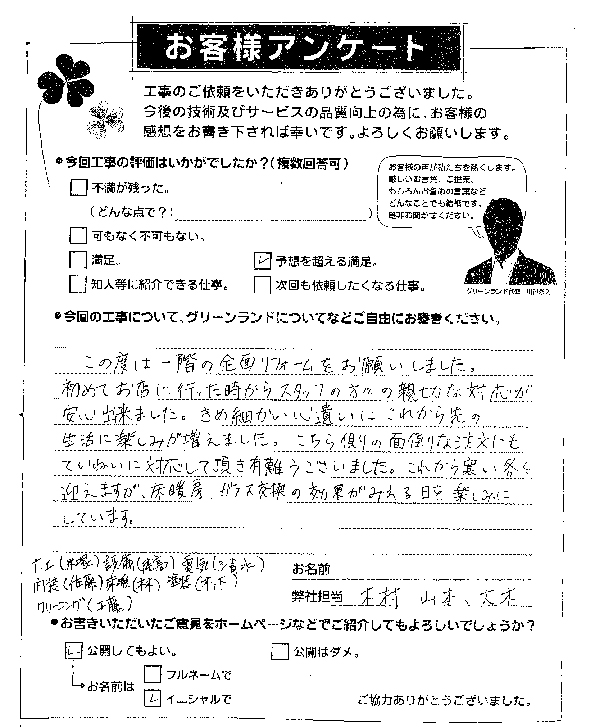 お客様アンケート
工事のご依頼をいただきありがとうございました。
今後の技術及びサービスの品質向上の為に、お客様の
感想をお書き下されば幸いです。よろしくお願いします。
●今回工事の評価はいかがでしたか？(複数回答可)
不満が残った。
(どんな点で？:
可もなく不可もない。
満足。
予想を超える満足。
知人等に紹介できる仕事。
次回も依頼したくなる仕事。
お客様の声が私たちを熱くします。
厳しいお言葉、ご提案、
もちろんお褒めの言葉など
どんなことでも結構です。
是非お聞かせください。
グリーンランド代表
●今回の工事について、グリーンランドについてなどご自由にお書きください。
この度は一階の全面リフォームをお願いしました。
初めてお店に行った時からスタッフの方々の親切な対応が
安心出来ました。きめ細かい心遣いにこれから先の
生活に楽しみが増えました。こちら側の面倒な注文にも
ていねいに対応して頂き有難うございました。これから寒い冬を
迎えますが、床暖房、ガラス交換の効果がみえる日を楽しみに
しています。
お名前
弊社担当 木村 山本、大木
クリーニング(工藤)
●お書きいただいたご意見をホームページなどでご紹介してもよろしいでしょうか？
公開してもよい。
公開はダメ。
お名前は
フルネームで
イニシャルで
ご協力ありがとうございました。